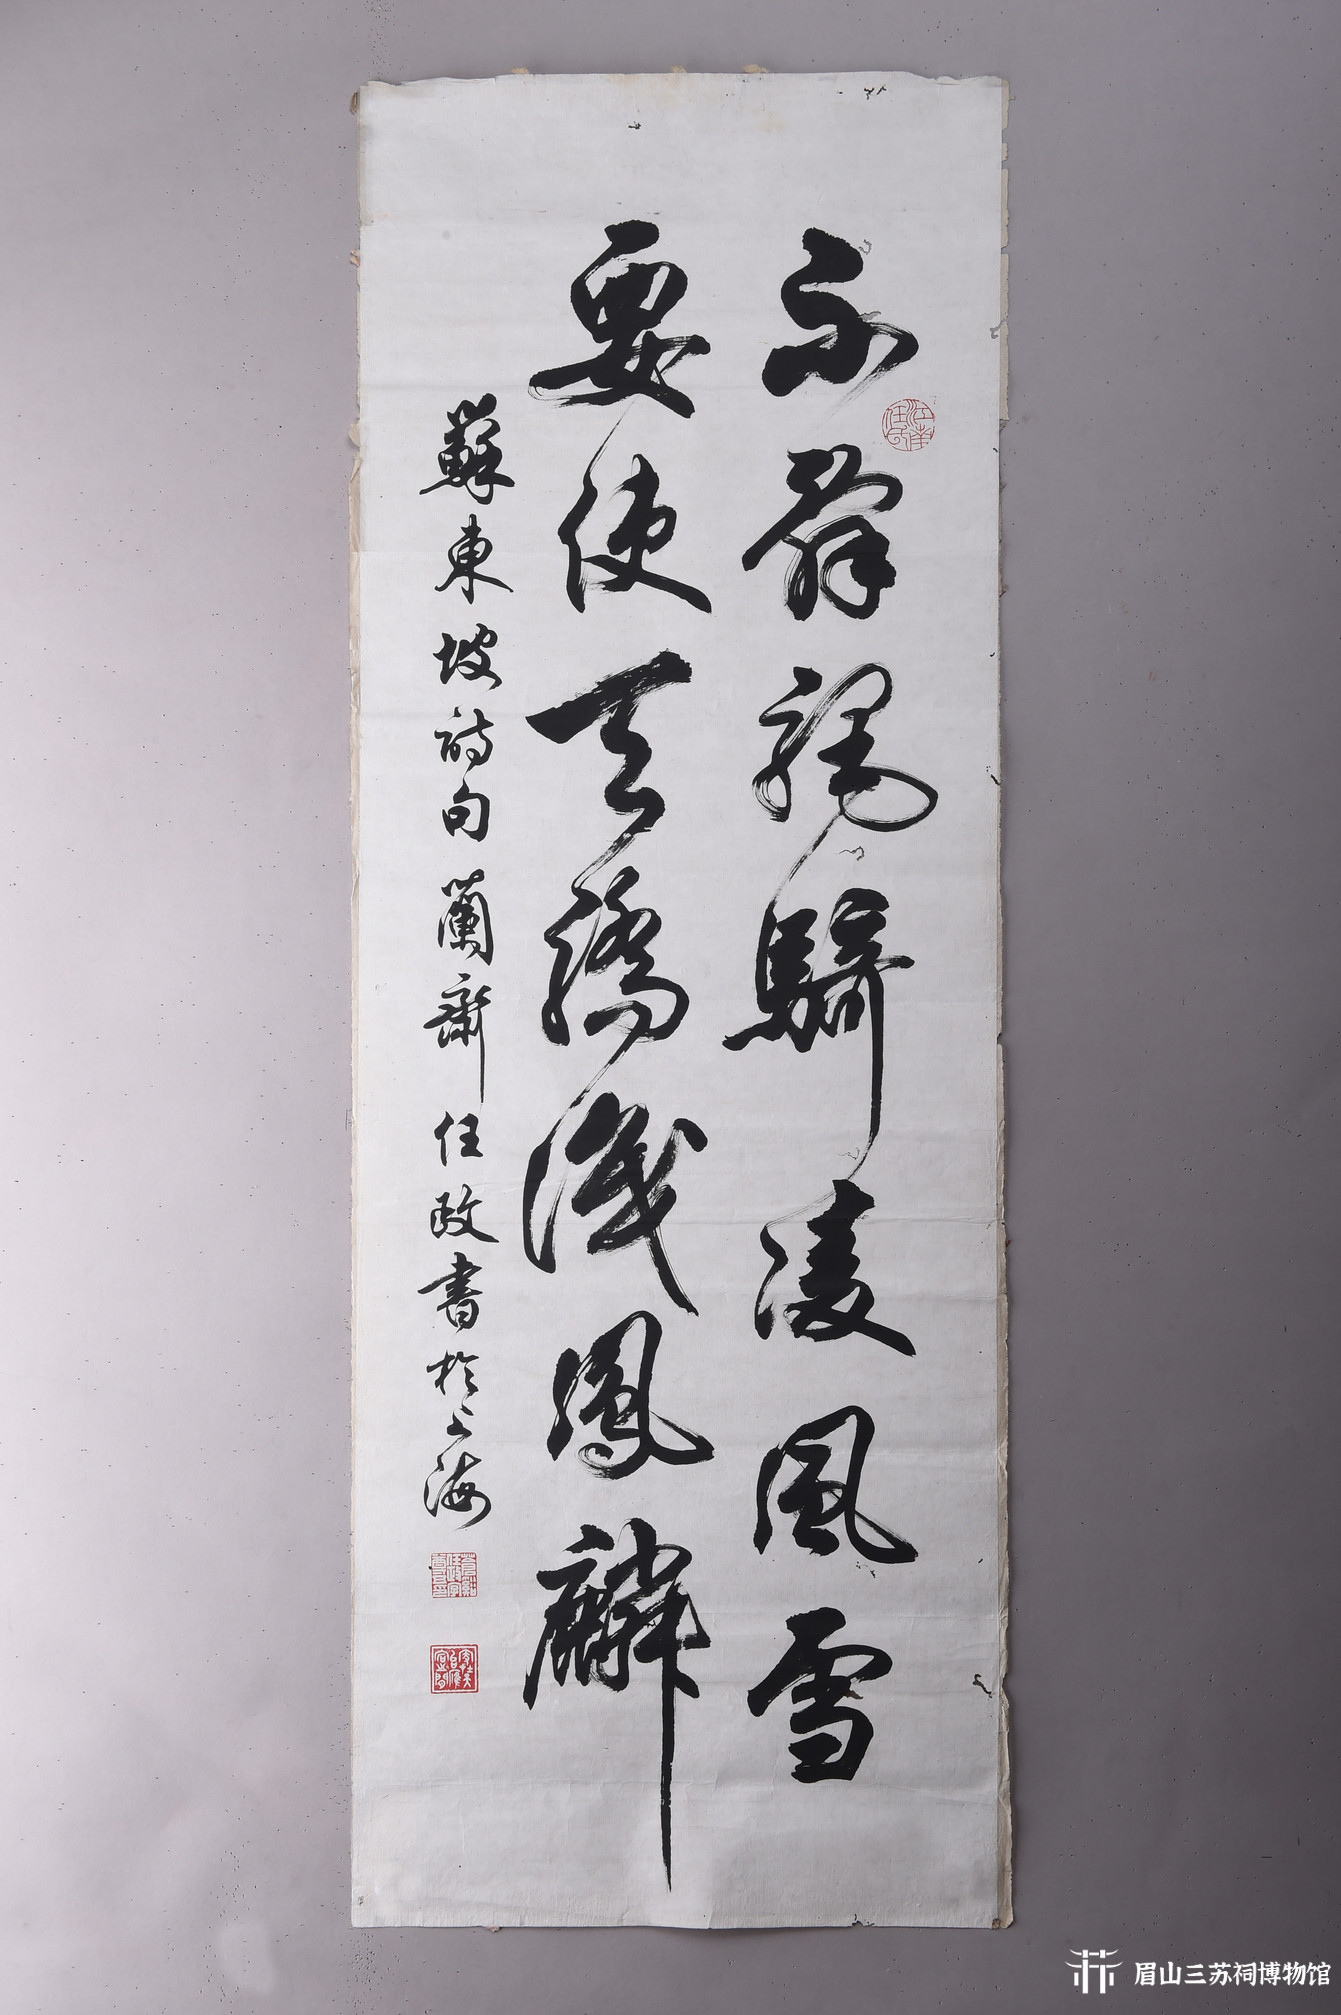 不辭馹騎凌風雪
要使天驕識鳳麟
蘇東坡詩句蘭齋任政書於上海
江南任氏
眉山三苏祠博物馆